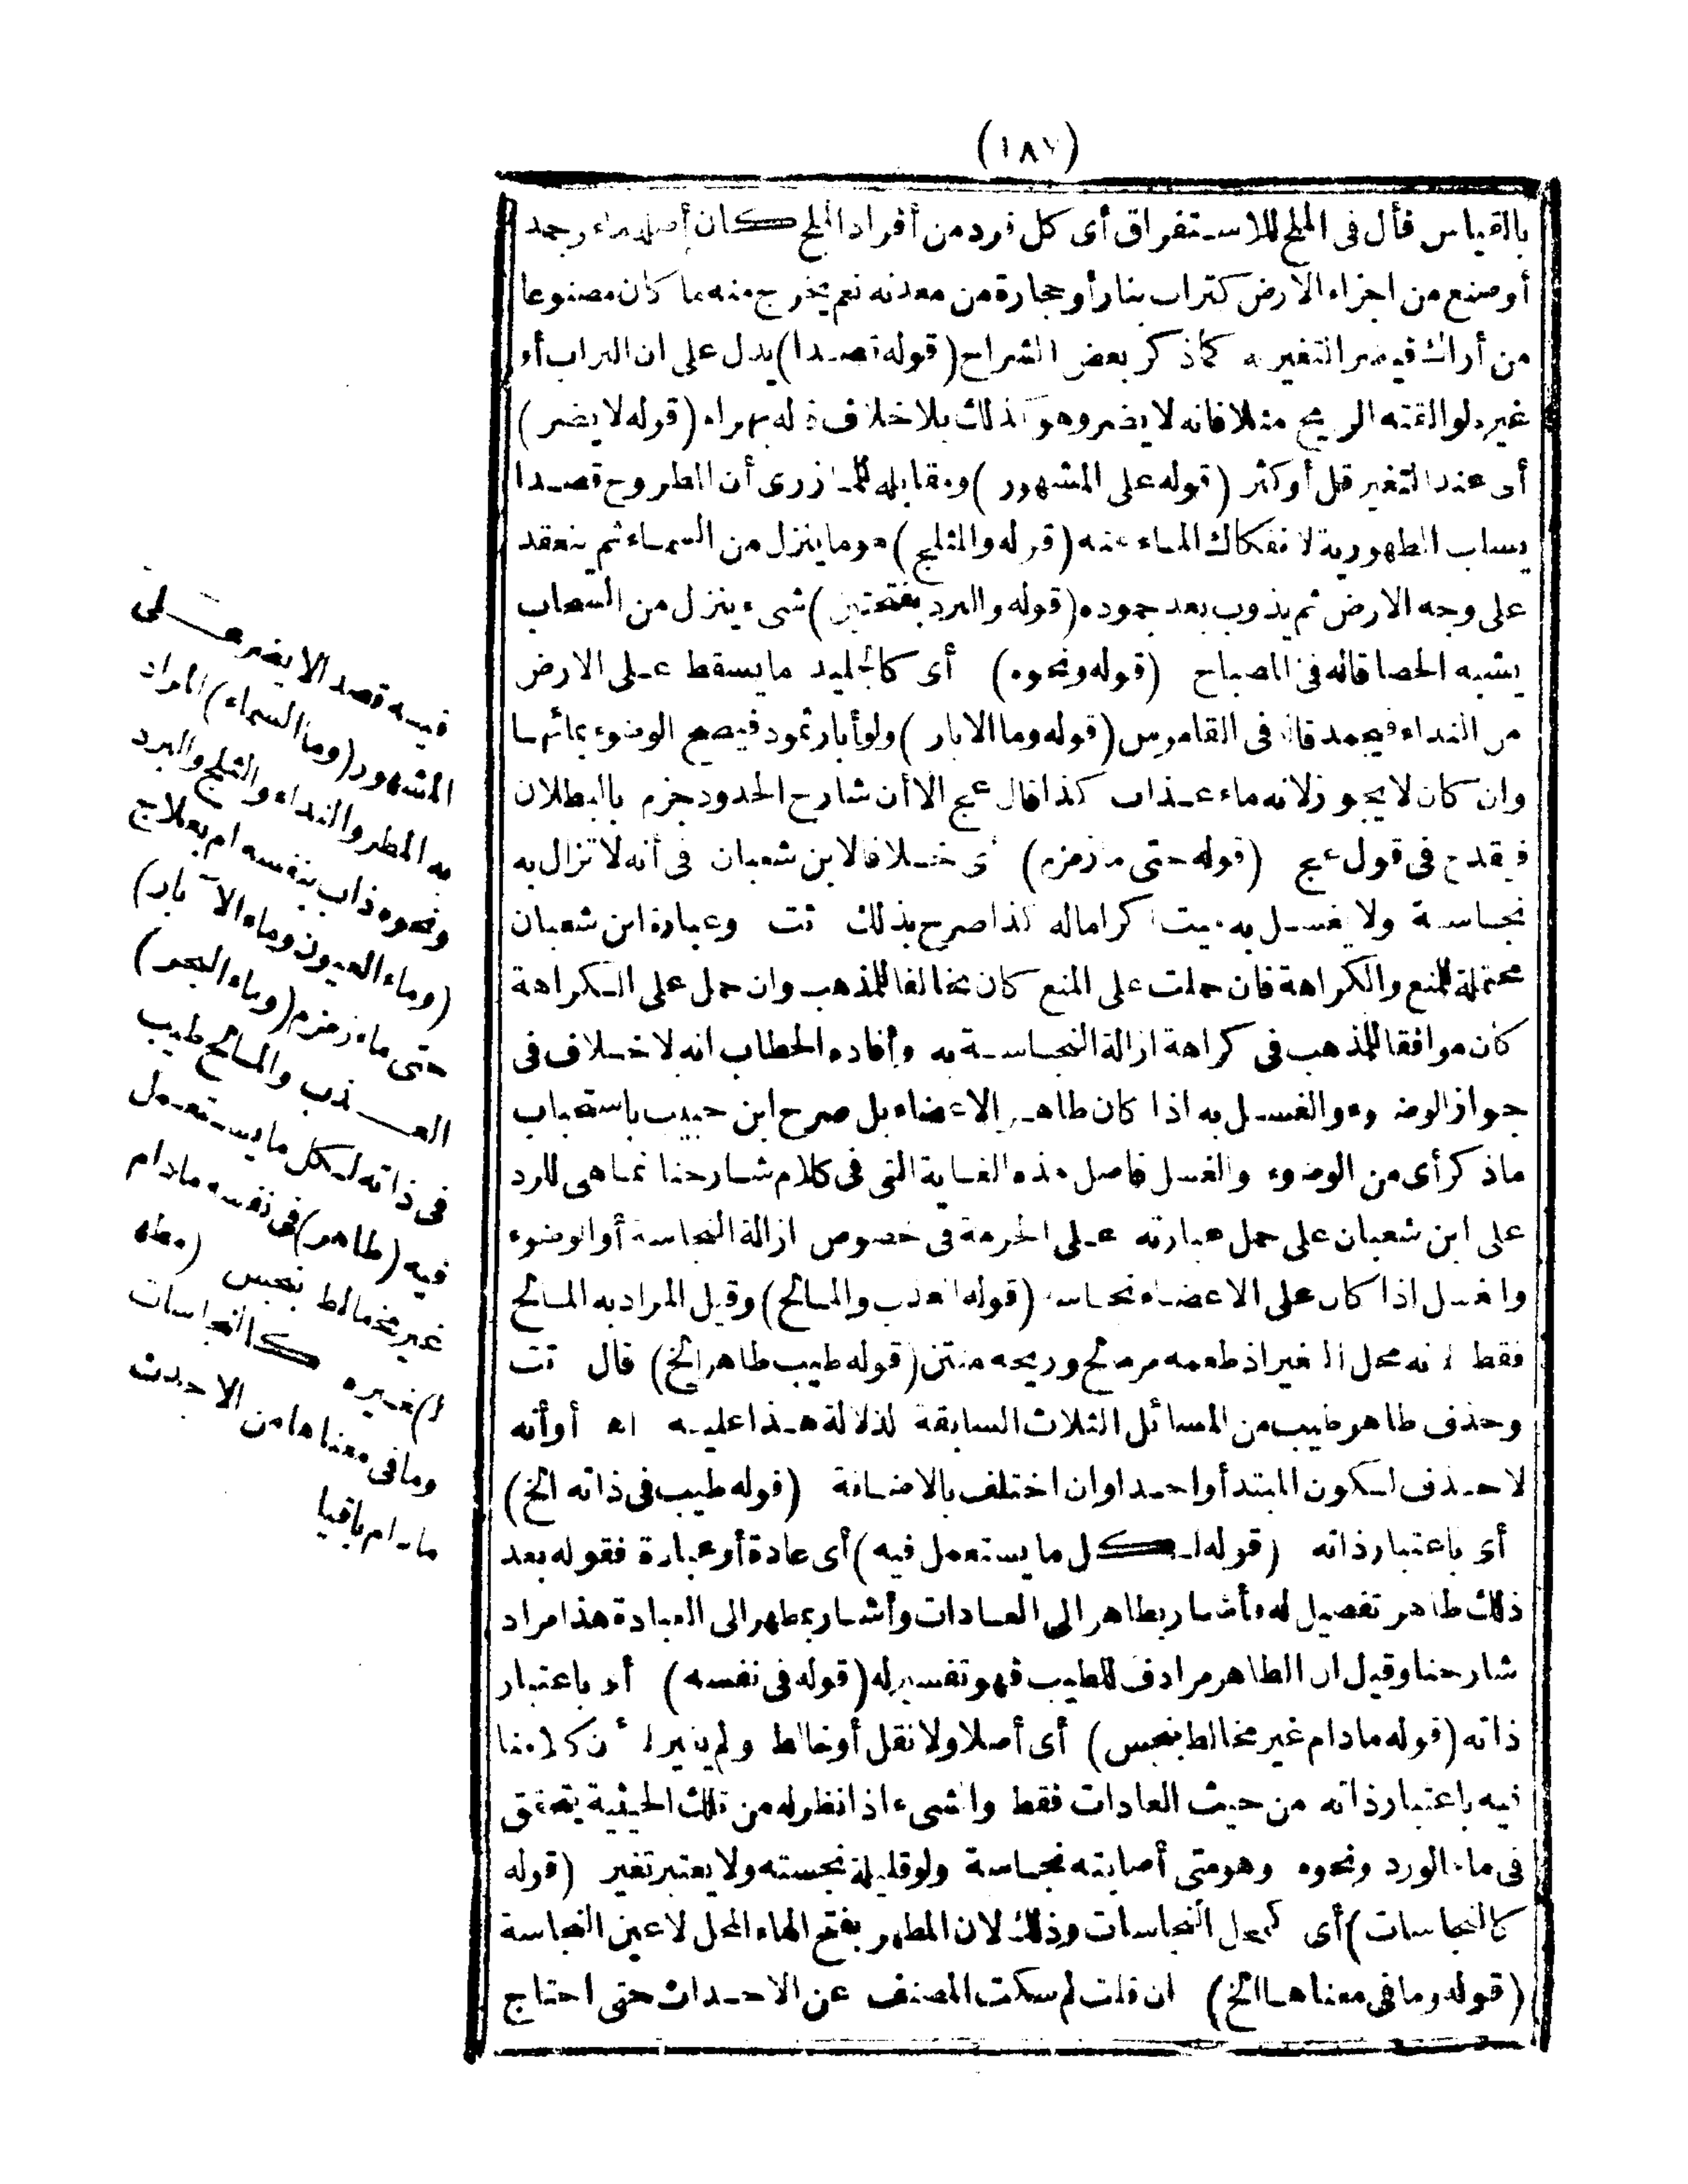 (١٨٧)
بالقياس فأل فى الملح للاستغراق أى كل فرد من أفراد الملح كان أصله ماء وجمد
أو صنع من اجزاء الارض كتراب بنار أو حجارة من معدنه نعم يخرج منه ما كان مصنوعا
من أراك فيضر التغير به كما ذكر بعض الشراح (قوله قصدا) يدل على ان التراب أو
غيره لو القته الريح مثلا فانه لا يضر وهو كذلك بلا خلاف قاله بهرام (قوله لا يضر)
أى عند التغير قل أو كثر (قوله على المشهور) ومقابله للمازرى أن المطروح قصدا
يسلب الطهورية لانفكاك الماء عنه (قوله والثلج) هو ما ينزل من السماء ثم ينعقد
على وجه الارض ثم يذوب بعد جموده (قوله والبرد بفتحتين) شىء ينزل من السحاب
يشبه الحصا قاله فى المصباح (قوله ونحوه) أى كالجليد ما يسقط على الارض
من النداء فيجمد قاله فى القاموس (قوله وما الابار) ولو أبار ثمود فيصح الوضوء بمائها
وان كان لا يجوز لانه ماء عذاب كذا قال عج الا أن شارح الحدود جزم بالبطلان
فيقدح فى قول عج (قوله حتى ما زمزم) أى خلافا لابن شعبان فى أنه لا تزال به
نجاسة ولا يغسل به ميت اكراما له كذا صرح بذلك تت وعبارة ابن شعبان
محتملة للمنع والكراهة فان حملت على المنع كان مخالفا للمذهب وان حمل على الكراهة
كان موافقا للمذهب فى كراهة ازالة النجاسة به وأفاده الحطاب انه لا خلاف فى
جواز الوضوء والغسل به اذا كان طاهر الاعضاء بل صرح ابن حبيب باستحباب
ما ذكر أى من الوضوء والغسل فاصل هذه الغاية التى فى كلام شارحنا انما هى للرد
على ابن شعبان على حمل عبارته على الحرمة فى خصوص ازالة النجاسة أو الوضوء
والغسل اذا كان على الاعضاء نجاسة (قوله العذب والمالح) وقيل المراد به المالح
فقط لانه محل التغير اذ طعمه مر مالح وريحه منتن (قوله طيب طاهر الخ) قال تت
وحذف طاهر طيب من المسائل الثلاث السابقة لدلالة هذا عليه اه أو أنه
لا حذف لكون المبتدأ واحدا وان اختلف بالاضافة (قوله طيب فى ذاته الخ)
أى باعتبار ذاته (قوله لكل ما يستعمل فيه) أى عادة أو عبادة فقوله بعد
ذلك طاهر تفصيل له فأشار بطاهر الى العادات وأشار بمطهر الى العبادة هذا مراد
شارحنا وقيل ان الطاهر مرادف للطيب فهو تفسير له (قوله فى نفسه) أى باعتبار
ذاته (قوله ما دام غير مخالط بنجس) أى أصلا ولا نقل أو خالط ولم يغير لأن كلامنا
فيه باعتبار ذاته من حيث العادات فقط والشىء اذا نظر له من تلك الحيثية يتحقق
فى ماء الورد ونحوه وهو متى أصابته نجاسة ولو قليلة نجسته ولا يعتبر تغير (قوله
كالنجاسات) أى كمحل النجاسات وذلك لان المطهر بفتح الهاء المحل لا عين النجاسة
(قوله وما فى معناها الخ) ان قلت لم سكت المصنف عن الاحداث حتى احتاج
فيه قصد الا يضر على
المشهور (وما السماء) المراد
به المطر والنداء والثلج والبرد
ونحوه ذاب بنفسه ام بعلاج
(وماء العيون وماء الآبار)
حتى ماء زمزم (وماء البحر)
العذب والمالح طيب
فى ذاته لكل ما يستعمل
فيه (طاهر) فى نفسه ما دام
غير مخالط بنجس (مطهر
لغيره كالنجاسات
وما فى معناها من الاحدث
مادام باقيا